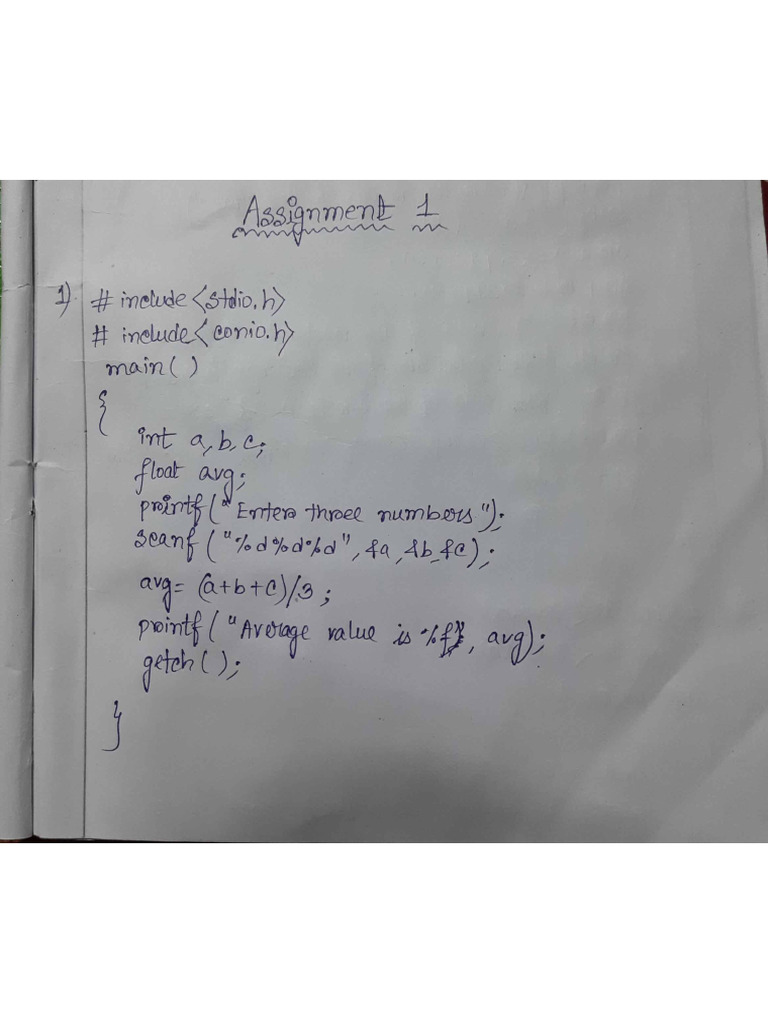 Assignment 1
1) # include <stdio.h>
# include <conio.h>
main( )
{
int a, b, c;
float avg;
printf("Enter three numbers");
scanf ("%d%d%d", &a, &b, &c);
avg = (a+b+c)/3;
printf ("Average value is %f", avg);
getch( );
}